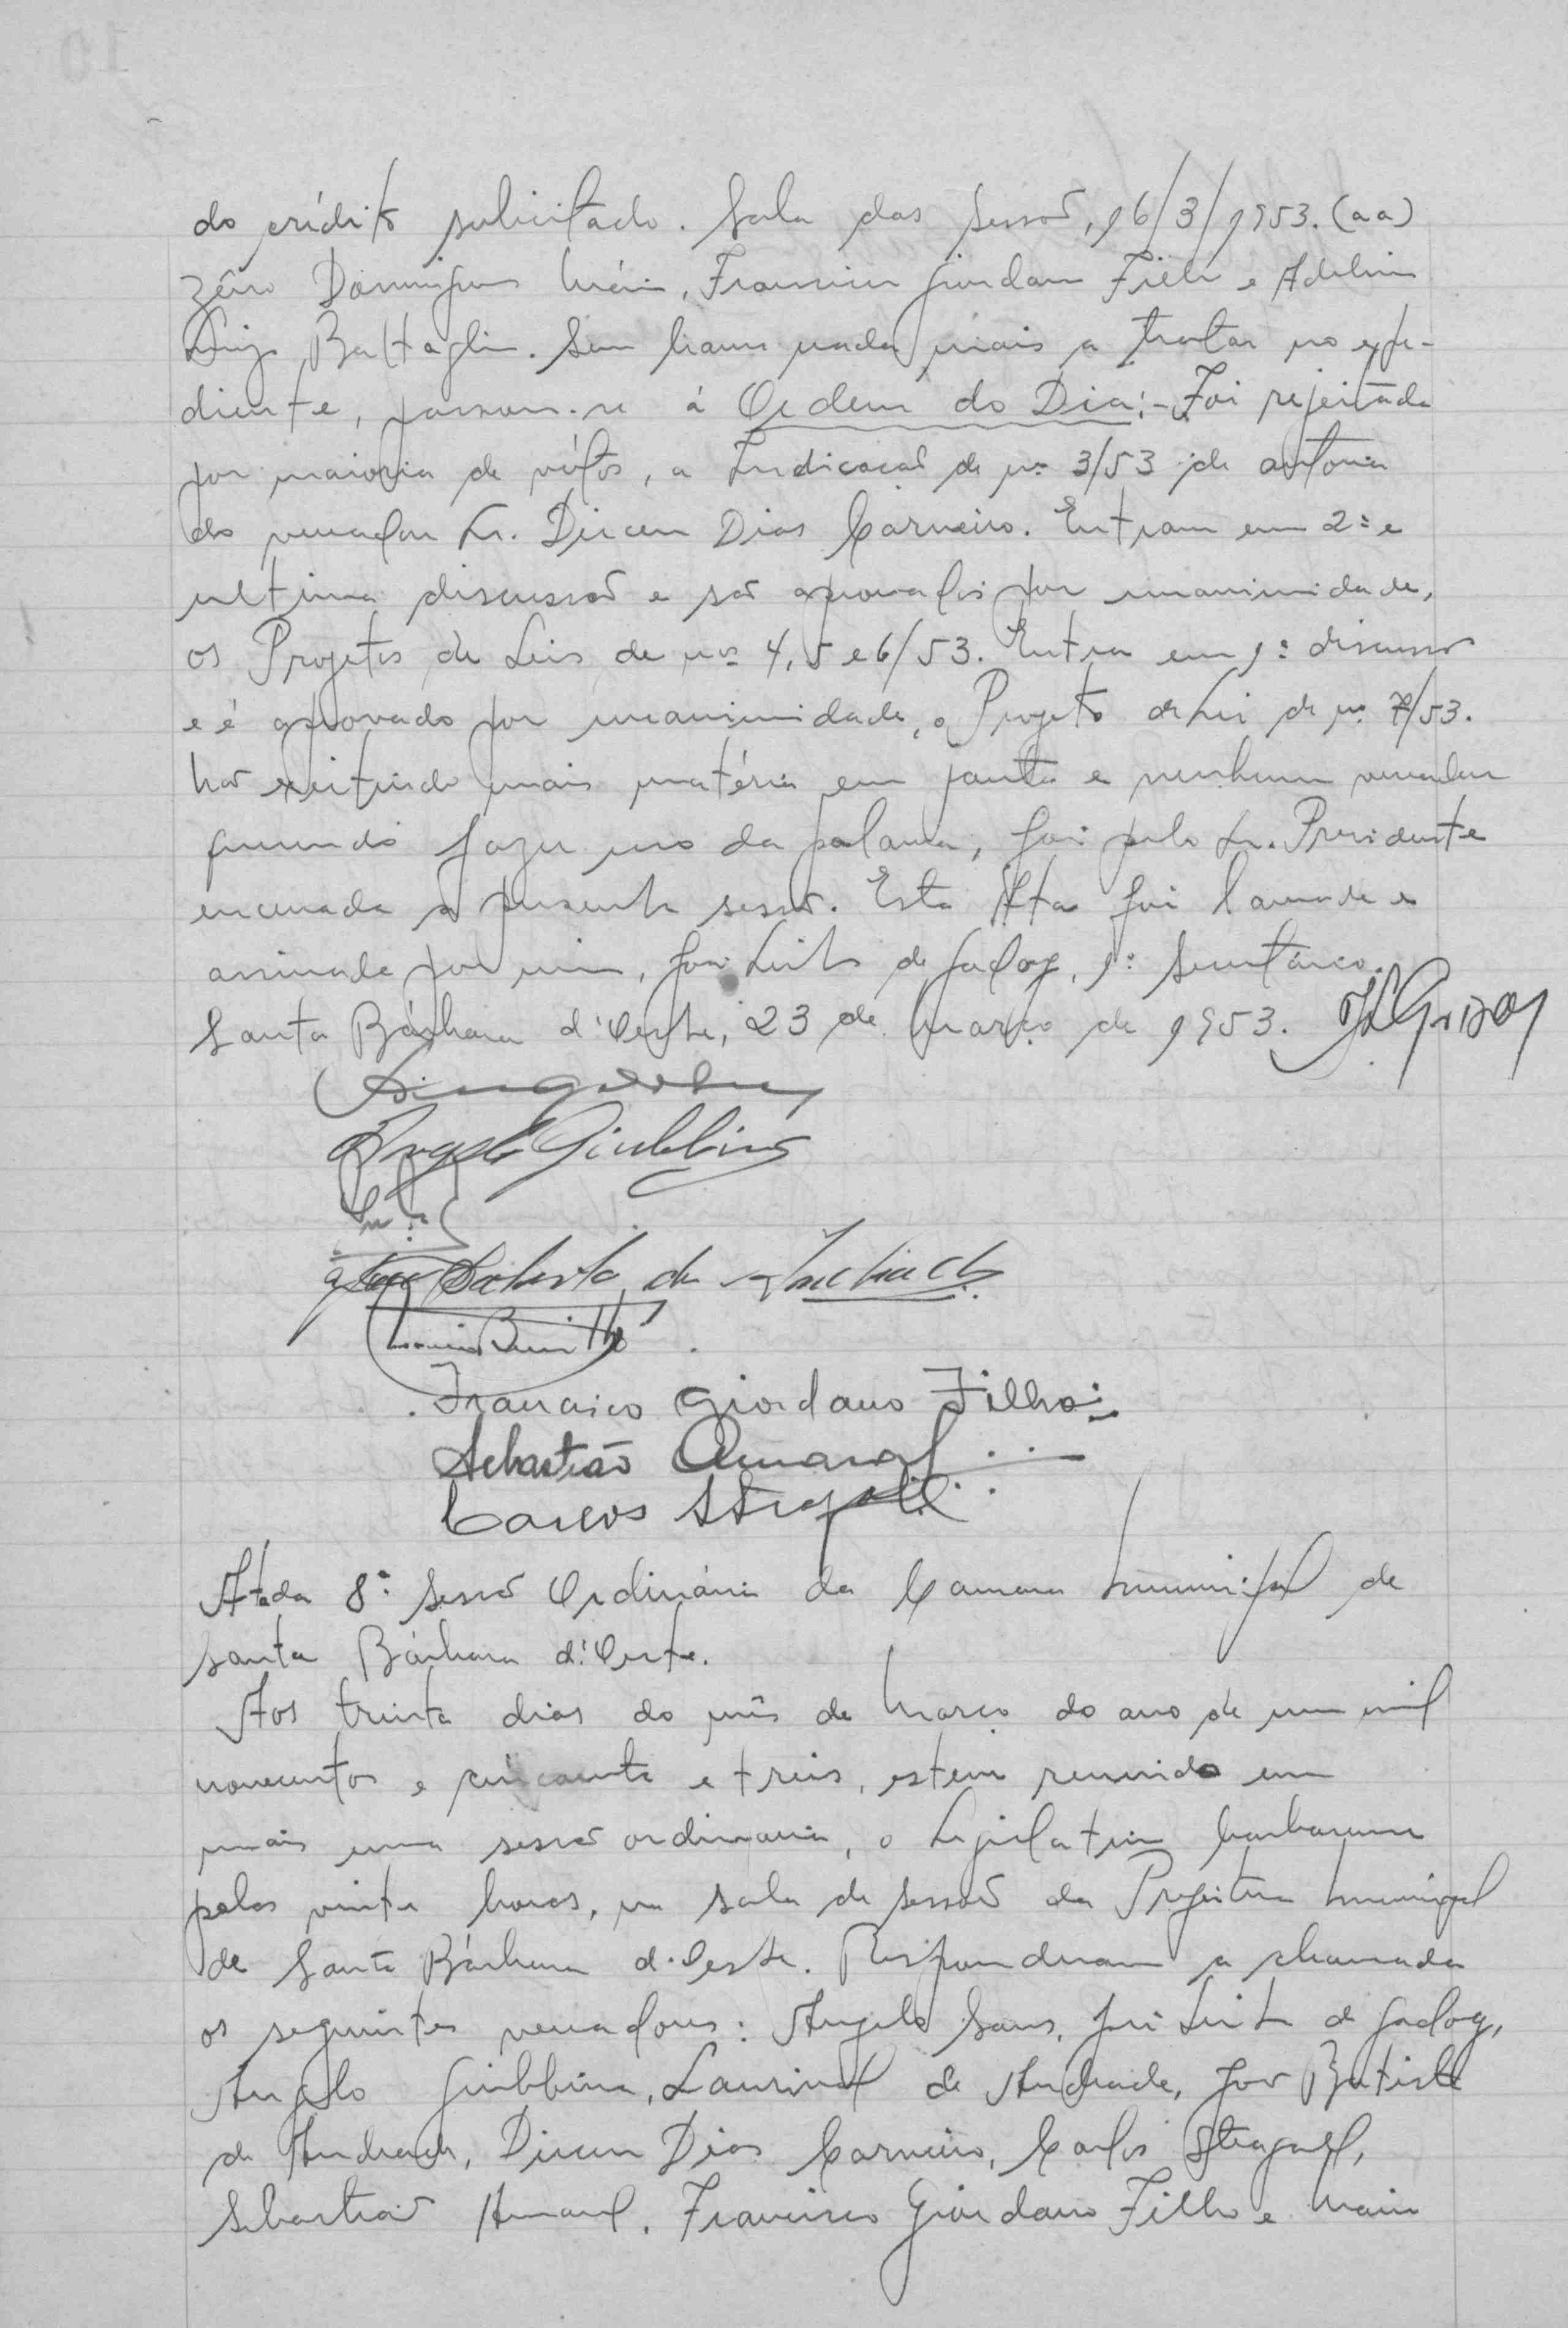 do crédito solicitado. Sala das Sessoẽ, 16/3/1953. (aa)
Zéno Domingues Maia, Francisco Giordano Filho e Adelino
Luiz Battaglin. Sem haver nada mais a tratar no expe-
diente, passou-se á Ordem do Dia:- Foi rejeitada
por maioria de vótos, a Indicação de nº 3/53 de autoria
do vereador Sr. Dirceu Dias Carneiro. Entram em 2ª e
ultima discussão e são aprovados por unanimidade,
os Projetos de Leis de nºs 4, 5 e 6/53. Entra em 1ª discussão
e é aprovado por unanimidade, o Projeto de Lei de nº 7/53.
Não existindo mais matéria em pauta e nenhum vereador
querendo fazer uso da palavra, foi pelo Sr. Presidente
encerrada a presente sessão. Esta Ata foi lavrada e
assinada por mim, José Leite de Godoy, 1º Secretário.
Santa Bárbara d'Oeste, 23 de Março de 1953. JLGodoy
Angelo Giubbina
Batista de Andrade
Francisco Giordano Filho
Sebastião Amaral
Carlos Steagall
Ata da 8ª Sessão Ordinária da Camara Municipal de
Santa Bárbara d'Oeste.
Aos trinta dias do mês de Março do ano de um mil
novecentos e cincoenta e treis, esteve reunido em
mais uma sessão ordinaria, o Legislativo barbarense
pelas vinte horas, na sala de sessoẽ da Prefeitura Municipal
de Santa Bárbara d'Oeste. Responderam a chamada
os seguintes vereadores: Angelo Sans, José Leite de Godoy,
Angelo Giubbina, Laurival de Andrade, João Batista
de Andrade, Dirceu Dias Carneiro, Carlos Steagall,
Sebastião Amaral, Francisco Giordano Filho e Mario